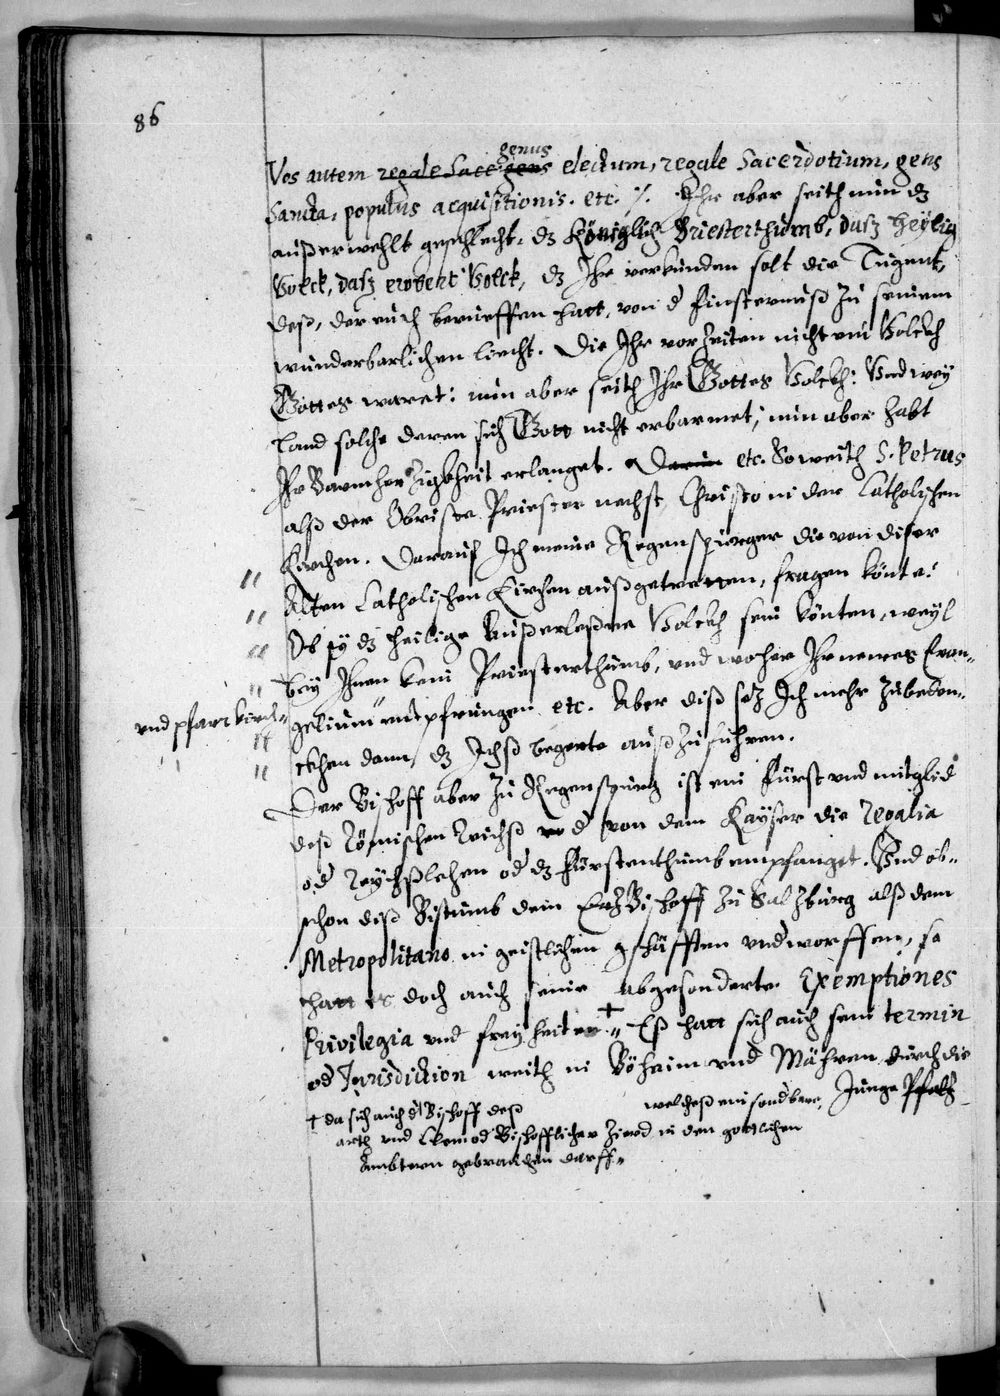 86
genus
Vos autem regale Sace gens electum, regale Sacerdotium, gens
Sancta, populus acquisitionis. etc. %. Ihr aber seith nun dz
außerwehlt geschlecht, dz Königlich Priesterthumb, dasz Heylig
Volck, dasz erobert Volck, dz Ihr verkunden solt die Tugent,
deß, der euch berueffen hatt, von d finsternuß zu seinem
wunderbarlichen liecht. Die Ihr vor Zeiten nicht ein Volckh
Gottes waret: nun aber seith Ihr Gottes Volckh: Vnd wey
land solche deren sich Gott nicht erbarmet, nun aber habt
Ihr Barmherzigkheit erlanget. Darin etc. Soweith S. Petrus
alß der Obriste Priester nechst Christo in der Catholischen
Kirchen. Darauf Ich meine Regenspurger die von diser
Alten Catholischen Kirchen außgetretten, fragen könte:
Ob sy dz heilige Außerleßne Volckh sein könten, weyl
bey Ihnen kein Priesterthumb, und woher Ihr newes Evan-
gelium entspfrungen etc. Aber diß sez Ich mehr zubeden-
vnd pfarrkirch-
ckhen dann, dz Ichß begerte außzufuhren.
Der Bischoff aber zu Regenspurg ist ein Fürst und mitglid
deß Römischen Reichß vnd von dem Kayser die regalia
od Reychßlehen od dz Fürstenthumb empfanget. Vnd ob-
schon diß Bistumb dem ErzBischoff zu Salzburg alß dem
Metropolitano in geistlichen gschäfften underworffen, so
hatt es doch auch seine abgesonderte Exemptiones
Privilegia und freyheiten. + Eß hatt sich auch sein termin
od Jurisdiction weith in Böheim und Mähren durch die
Junge Pfaltz
+ da sich auch d Bischoff deß welcheß ein sondbare
und Bischofflicher Zierd in den gottlichen
Ambtern gebrauchen darff